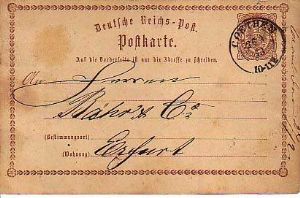 Deutsche Reichs-Post.
Postkarte.
Auf die Vorderseite ist nur die Adresse zu schreiben.
COETHEN
10-11V
An Herren
Bähr & Co
(Bestimmungsort)
Erfurt
(Wohnung)